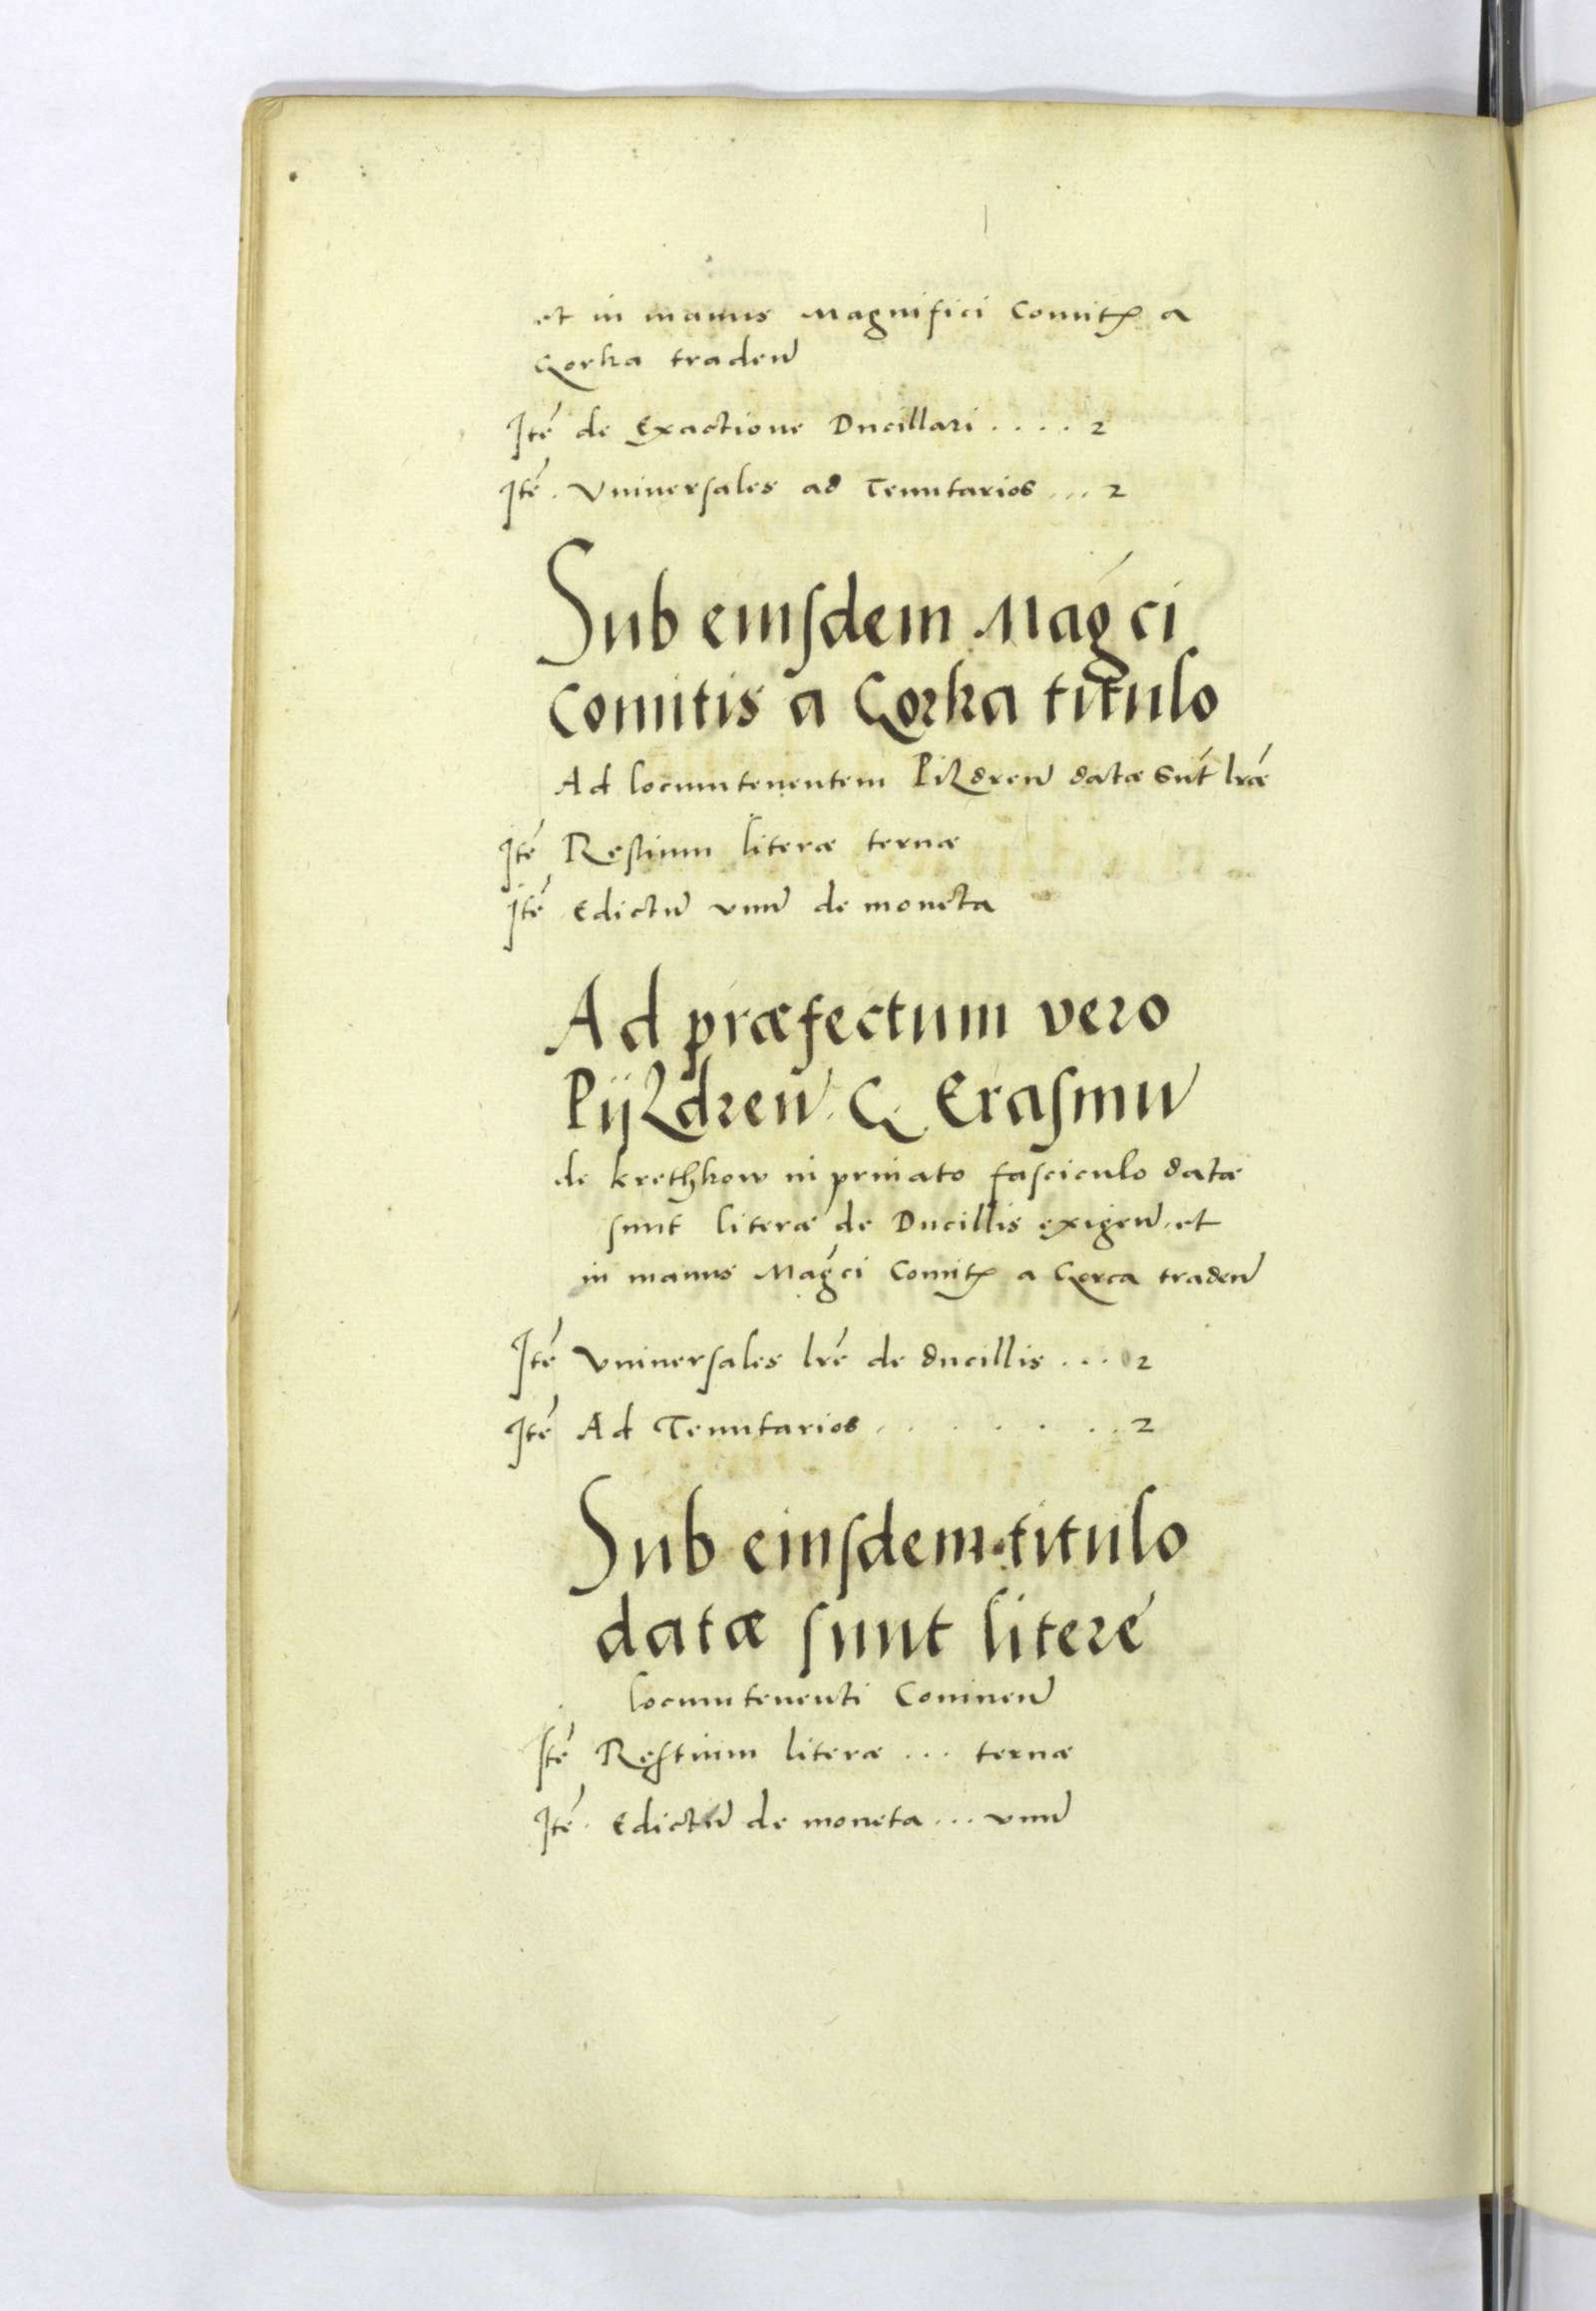 et in manus Magnifici Comitꝭ a
Gorka traden̄
Itē de Exactione Ducillari .... 2
Itē. Vniuersales ad Tenutarios ... 2
Sub eiusdem Mag̃ci
Comitis a Gorka titulo
Ad locumtenentem Pizdren̄ datæ sūt lræ̃
Itē Restium literæ ternæ
Itē Edictū vnū de moneta
Ad præfectum vero
Pijzdren̄. G. Erasmū
de krethkow in priuato fasciculo datæ
sunt literæ de Ducillis exigen̄. et
in manus Mag̃ci Comitꝭ a Gorca traden̄
Itē Vniuersales lrē de ducillis ... 2
Itē Ad Tenutarios ....... 2
Sub eiusdem titulo
datæ sunt litere
locumtenenti Coninen̄
Itē Restium literæ ... ternæ
Itē. Edictū de moneta ... vnū